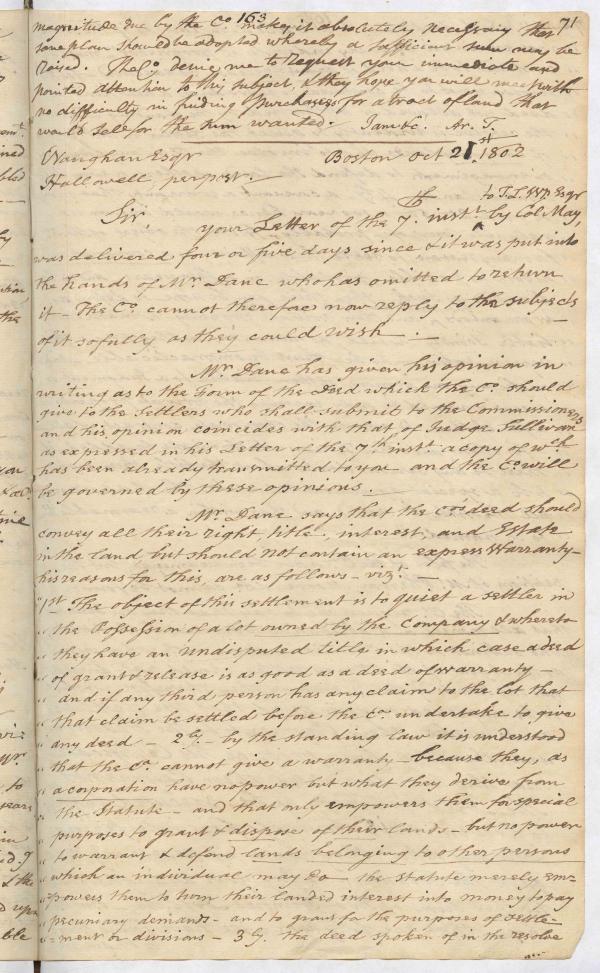 163 71
magnitude due by the Co. makes it absolutely necessary that
some plan should be adopted whereby a sufficient sum may be
raised. The Co. desire me to request your immediate and
pointed attention to this subject, & they hope you will meet with
no difficulty in finding Purchasers for a tract of land that
would sell for the sum wanted. I am &c. Ar. T.
Vaughan Esqr Boston Oct 21st. 1802
Hallowell per post.
to T. L. Wp. Esqr
Sir, your Letter of the 7th. inst. ^ by Col. May,
was delivered four or five days since & it was put into
the hands of Mr. Dane who has omitted to return
it - The Co. cannot therefore now reply to the subjects
of it so fully as they could wish. -
Mr. Dane has given his opinion in
writing as to the Form of the Deed which the Co. should
give to the Settlers who shall submit to the Commissioners
and his opinion coincides with that of Judge Sullivan
as expressed in his Letter of the 7th. inst. a copy of wch
has been already transmitted to you and the Co. will
be governed by these opinions.
Mr. Dane says that the Co. deed should
convey all their right, title, interest, and Estate
in the land but should not contain an express Warranty -
his reasons for this, are as follows - vizt. -
"1st The object of this settlement is to quiet a settler in
" the Possession of a lot owned by the Company & whereto
" they have an undisputed title in which case a deed
" of grant & release is as good as a deed of warranty -
" and if any third person has any claim to the lot that
" that claim be settled before the Co. undertake to give
" any deed - 2ly. - by the standing law it is understood
" that the Co. cannot give a warranty - because they, as
" a corporation have no power but what they derive from
" the Statute - and that only empowers them for special
" purposes to grant & dispose of their lands - but no power
" to warrant & defend lands belonging to other persons
" which an individual may do - the Statute merely em=
" powers them to turn their landed interest into money to pay
" pecuniary demands - and to grant for the purposes of settle=
"=ment or divisions - 3ly. the deed spoken of in the resolve